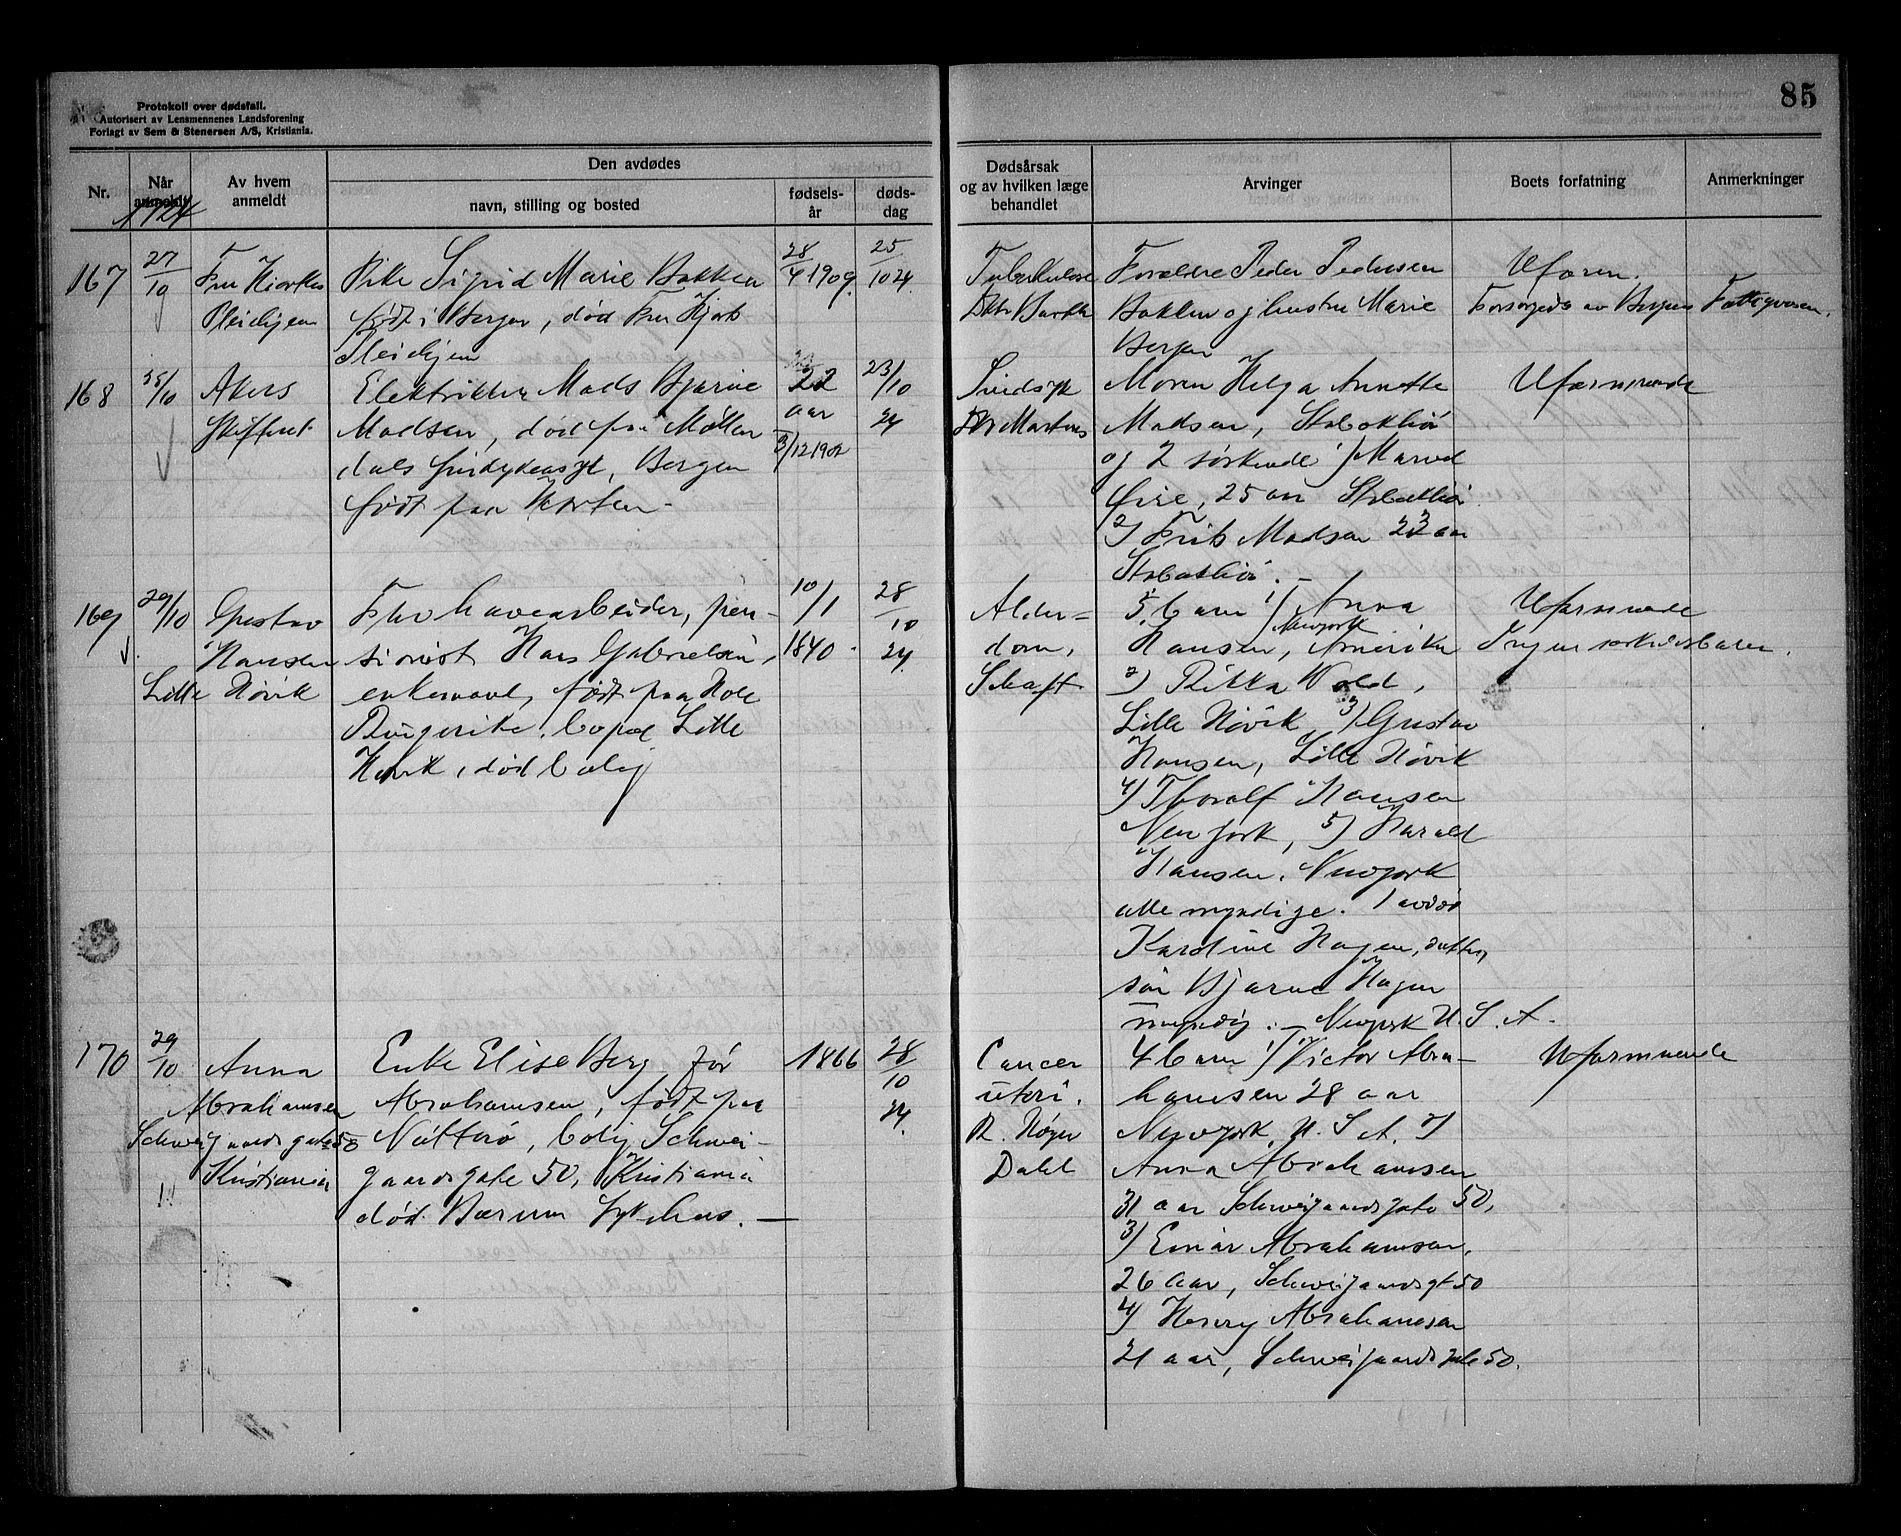 Protokoll over dødsfall.
Autorisert av Lensmennenes Landsforening
Forlagt av Sem & Stenersen A/S, Kristiania.
85
Nr.
Når anmeldt
1924
Av hvem anmeldt
Den avdødes
navn, stilling og bosted
fødsels-år
døds-dag
Dødsårsak og av hvilken læge behandlet
Arvinger
Boets forfatning
Anmerkninger
167
27/10
Fru
Pleiehjem
Pike Sigrid Marie Bakken
født i Bergen, død Fru Hjorts
Pleiehjem
28/4 1909.
25/10 24.
Tuberkulose
Dktr Barth
Forældre Peder Pedersen
Bakken og hustru Marie
Bergen
Uformu.
Forsørgeds av Bergens
Fattigvesen.
168
25/10
Akers
Skifteret
Elektriker Mads Bjarne
Madsen, død paa Møllen
dals sindsykeasyl, Bergen
født paa Horten -
22
aar
3/12 1902
23/10
24
Sindsyk
Dr Martens
Moren Helga Annette
Madsen, Stabekkiø
og 2 søskende 1)
25 aar Stabekkiø
2) Frits Madsen 22 aar
Stabekkiø. -
Uformuende
169
29/10
Gustav
Hansen
Lille Høvik
Fhv havearbeider, pen-
sionist Hans Gabrielsen,
enkemand, født paa Hole
Ringerike, bopæl Lille
Høvik, død bolig
10/1
1840.
28/10
24.
Alder=
dom,
Schaft
5 barn 1) Anna
Newyork
Hansen, Amerika
2) Rikka Wold,
Lille Høvik 3) Gustav
Hansen, Lille Høvik
4) Thoralf Hansen
New York, 5) Harald
Hansen, Newyork
alle myndige. 1 avdød
Karoline Hagen, datter,
søn Bjarne Hagen
myndig. - Newyork U.S.A.
Uformuende
Ingen
170
29/10
Anna
Abrahamsen
Schweigaards gate 50
Kristiania
!!!
Enke Elise Berg, før
Abrahamsen, født paa
Nøtterø, bolig Schwei-
gaards gate 50, Kristiania
død Bærum Sykehus. -
1866
28/10
24.
Cancer
uteri.
R. Høyer
Dahl
4 barn 1) Victor Abra-
hamsen 28 aar
Newyork, U.S.A. 2)
Anna Abrahamsen
31 aar Schweigaardsgate 50,
3) Einar Abrahamsen,
26 aar, Schweigaardsgt 50
4) Henry Abrahamsen
21 aar, Schweigaards gate 50.
Uformuende